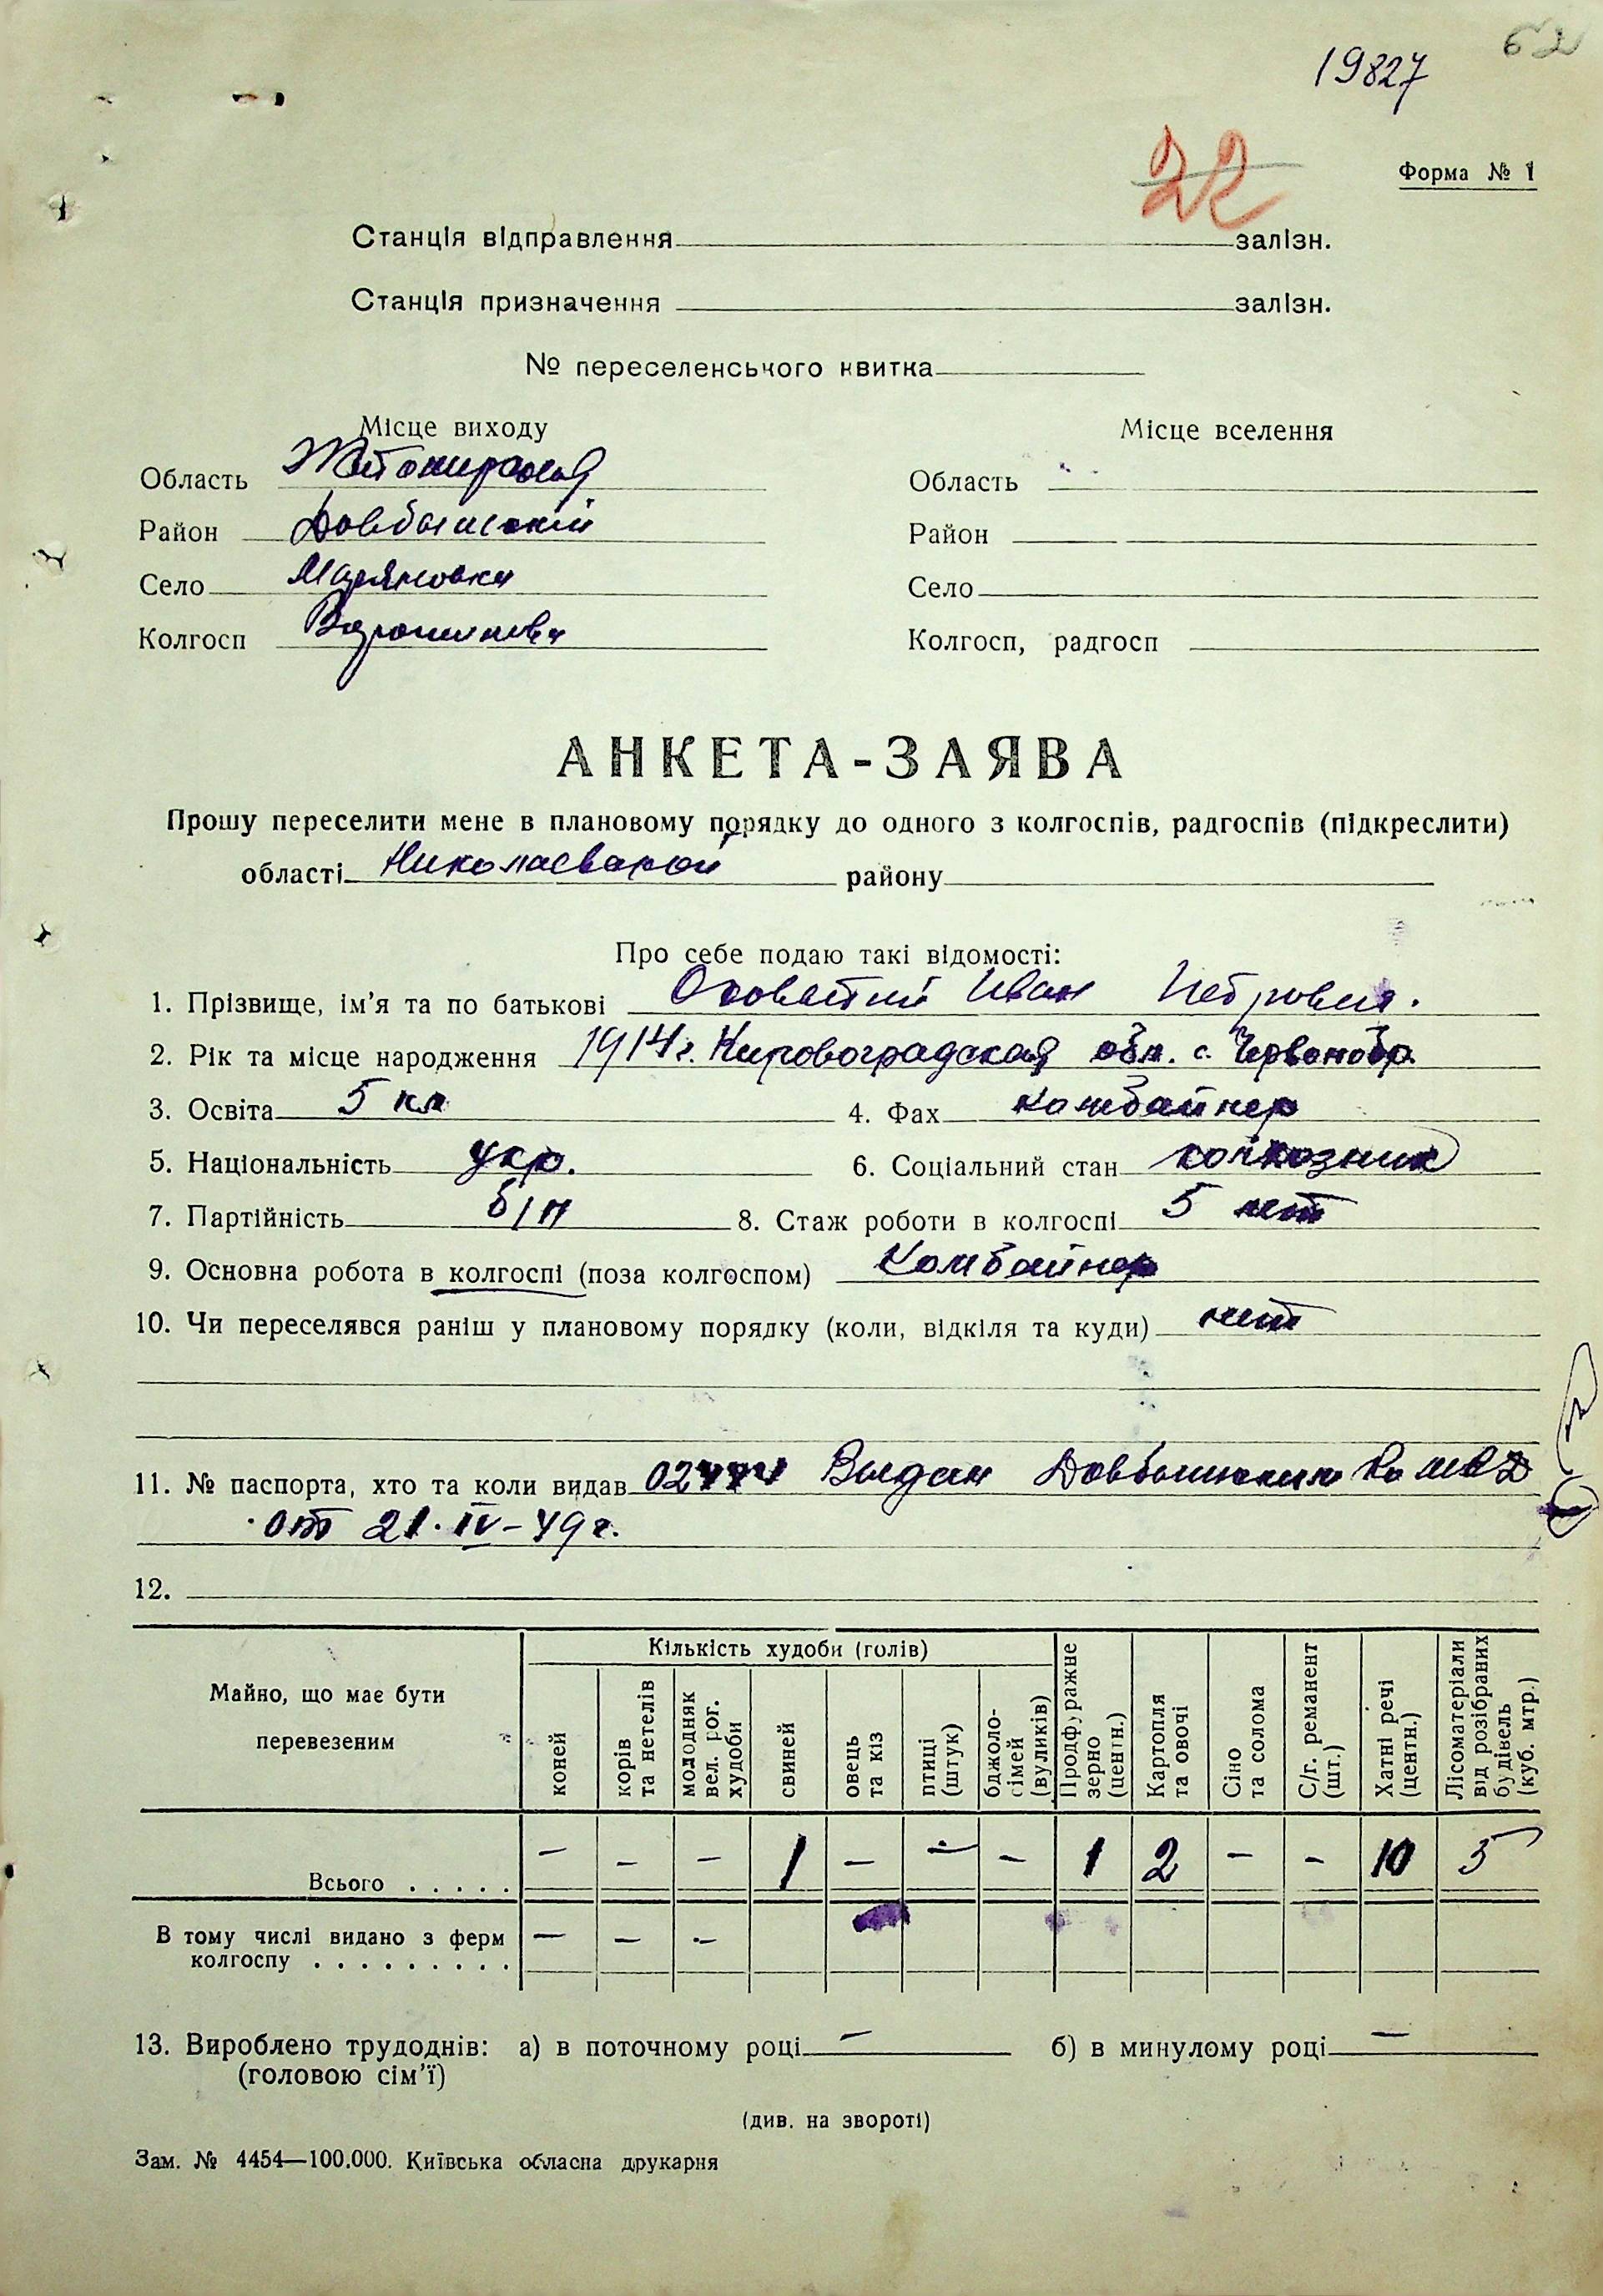 62
19827
22
Форма № 1
Станція відправлення залізн.
Станція призначення залізн.
№ переселенського квитка
Місце виходу Місце вселення
Область Житомирская Область
Район Довбышский Район
Село Маряновка Село
Колгосп Ворошилова Колгосп, радгосп
АНКЕТА-ЗАЯВА
Прошу переселити мене в плановому порядку до одного з колгоспів, радгоспів (підкреслити)
області Николаевской району
Про себе подаю такі відомості:
1. Прізвище, ім'я та по батькові Иван Петрович.
2. Рік та місце народження 1914 г. Кировоградская обл. с. Червонобр.
3. Освіта 5 кл 4. Фах комбайнер
5. Національність укр. 6. Соціальний стан колхозник
7. Партійність б/п 8. Стаж роботи в колгоспі 5 лет
9. Основна робота в колгоспі (поза колгоспом) Комбайнер
10. Чи переселявся раніш у плановому порядку (коли, відкіля та куди) нет
11. № паспорта, хто та коли видав Выдан Довбышским Ро МВД
от 21.IV-49 г.
12.
Майно, що має бути перевезеним
Кількість худоби (голів)
коней
корів та нетелів
молодняк вел. рог. худоби
свиней
овець та кіз
птиці (штук)
бджоло-сімей (вуликів)
Продфуражне зерно (центн.)
Картопля та овочі
Сіно та солома
С/г. реманент (шт.)
Хатні речі (центн.)
Лісоматеріали від розібраних будівель (куб. мтр.)
Всього . . . . . — — — 1 — — — 1 2 — — 10 5
В тому числі видано з ферм — — —
колгоспу . . . . . . . . .
13. Вироблено трудоднів: а) в поточному році — б) в минулому році —
(головою сім'ї)
(див. на звороті)
Зам. № 4454—100.000. Київська обласна друкарня